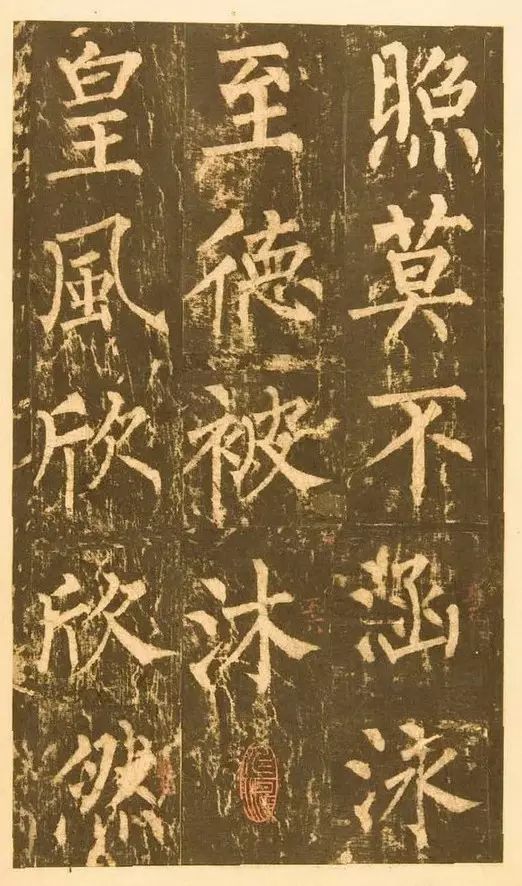 照莫不涵泳
至德被沐
皇風欣欣然